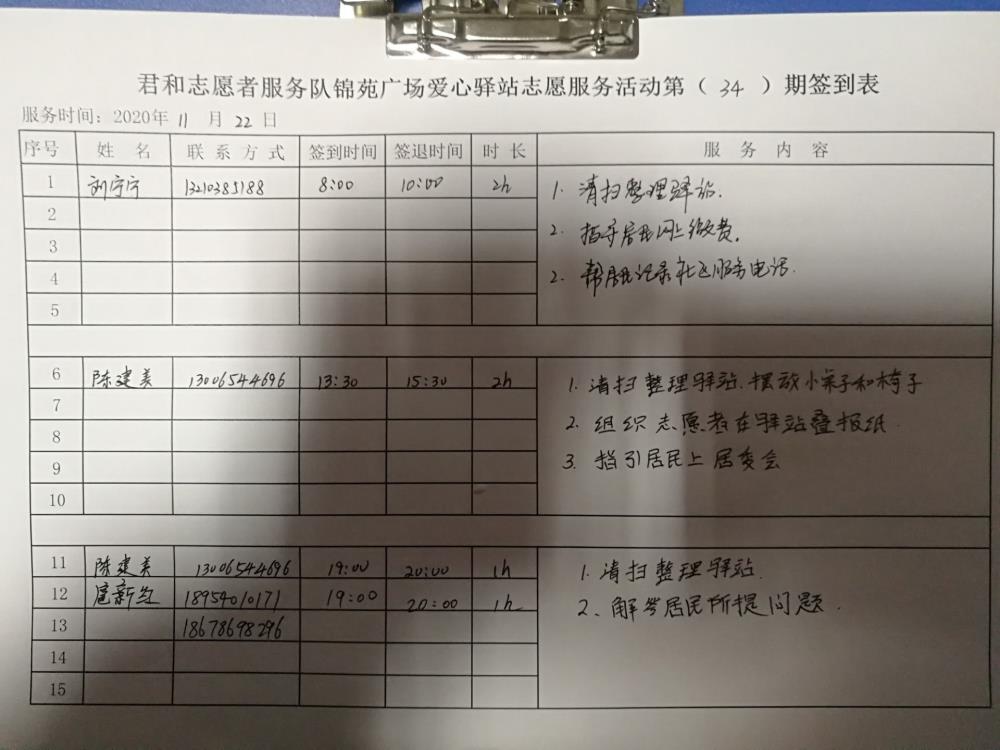 君和志愿者服务队锦苑广场爱心驿站志愿服务活动第（ 34 ）期签到表
服务时间：2020年 11 月 22 日
序号 姓 名 联 系 方 式 签到时间 签退时间 时 长 服 务 内 容
1 刘宁宁 13210385188 8:00 10:00 2h 1. 清扫整理驿站.
2
2. 指导居民网上缴费.
3
2. 帮居民记录社区服务电话.
4
5
6 陈建美 13006544696 13:30 15:30 2h 1. 清扫整理驿站.摆放小桌子和椅子
7
2. 组织志愿者在驿站叠报纸.
8
3. 指引居民上居委会
9
10
11 陈建美 13006544696 19:00 20:00 1h 1. 清扫整理驿站.
12 扈新红 18954010171 19:00 20:00 1h 2、解答居民所提问题.
13 18678698296
14
15